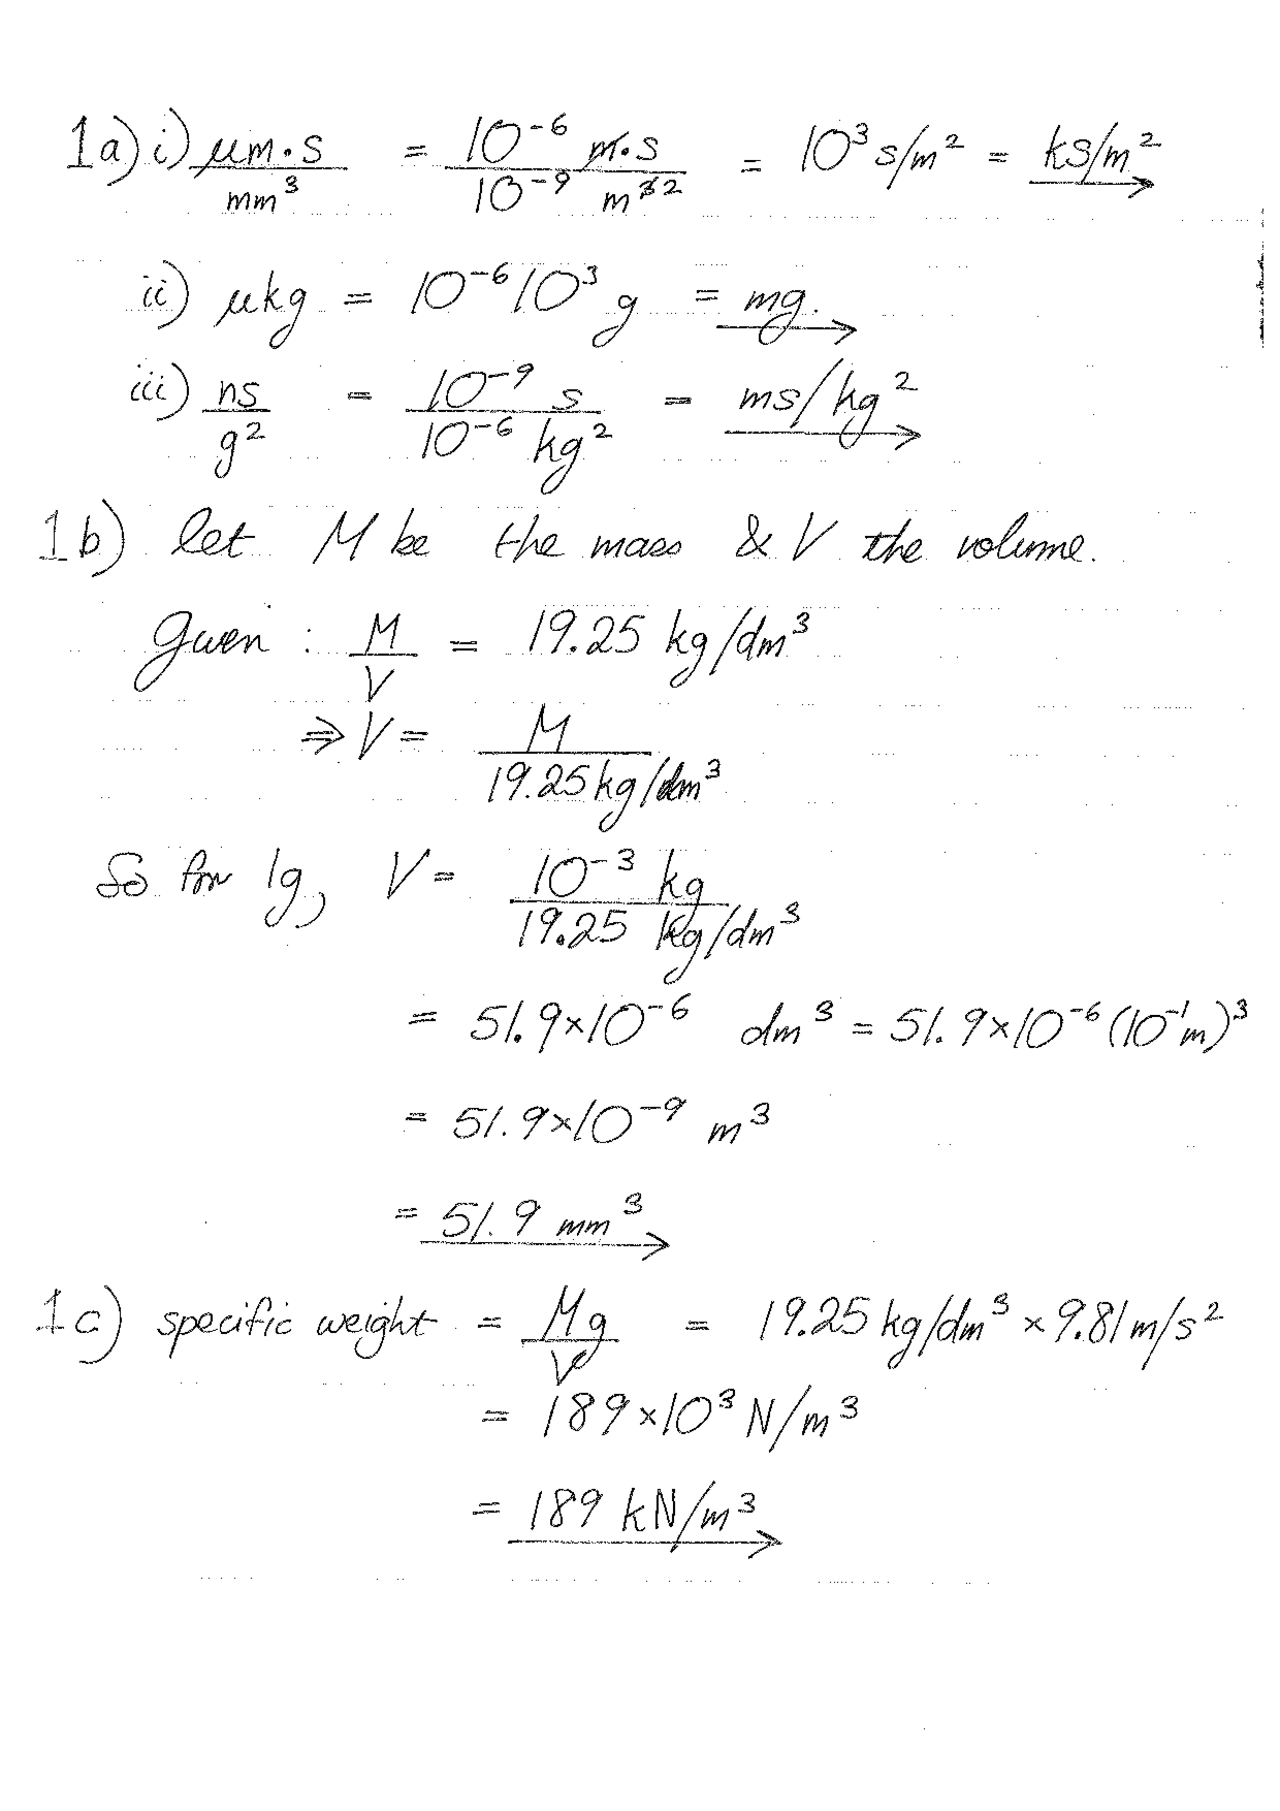 1a) i) μm·s/mm³ = 10⁻⁶ m·s/10⁻⁹ m³² = 10³ s/m² = ks/m²
ii) μkg = 10⁻⁶10³ g = mg.
iii) ns/g² = 10⁻⁹ s/10⁻⁶ kg² = ms/kg²
1b) let M be the mass & V the volume.
Given : M/V = 19.25 kg/dm³
⇒ V = M/19.25 kg/dm³
So for 1g, V = 10⁻³ kg/19.25 kg/dm³
= 51.9×10⁻⁶ dm³ = 51.9×10⁻⁶ (10⁻¹m)³
= 51.9×10⁻⁹ m³
= 51.9 mm³
1c) specific weight = Mg/V = 19.25 kg/dm³ × 9.81 m/s²
= 189×10³ N/m³
= 189 kN/m³